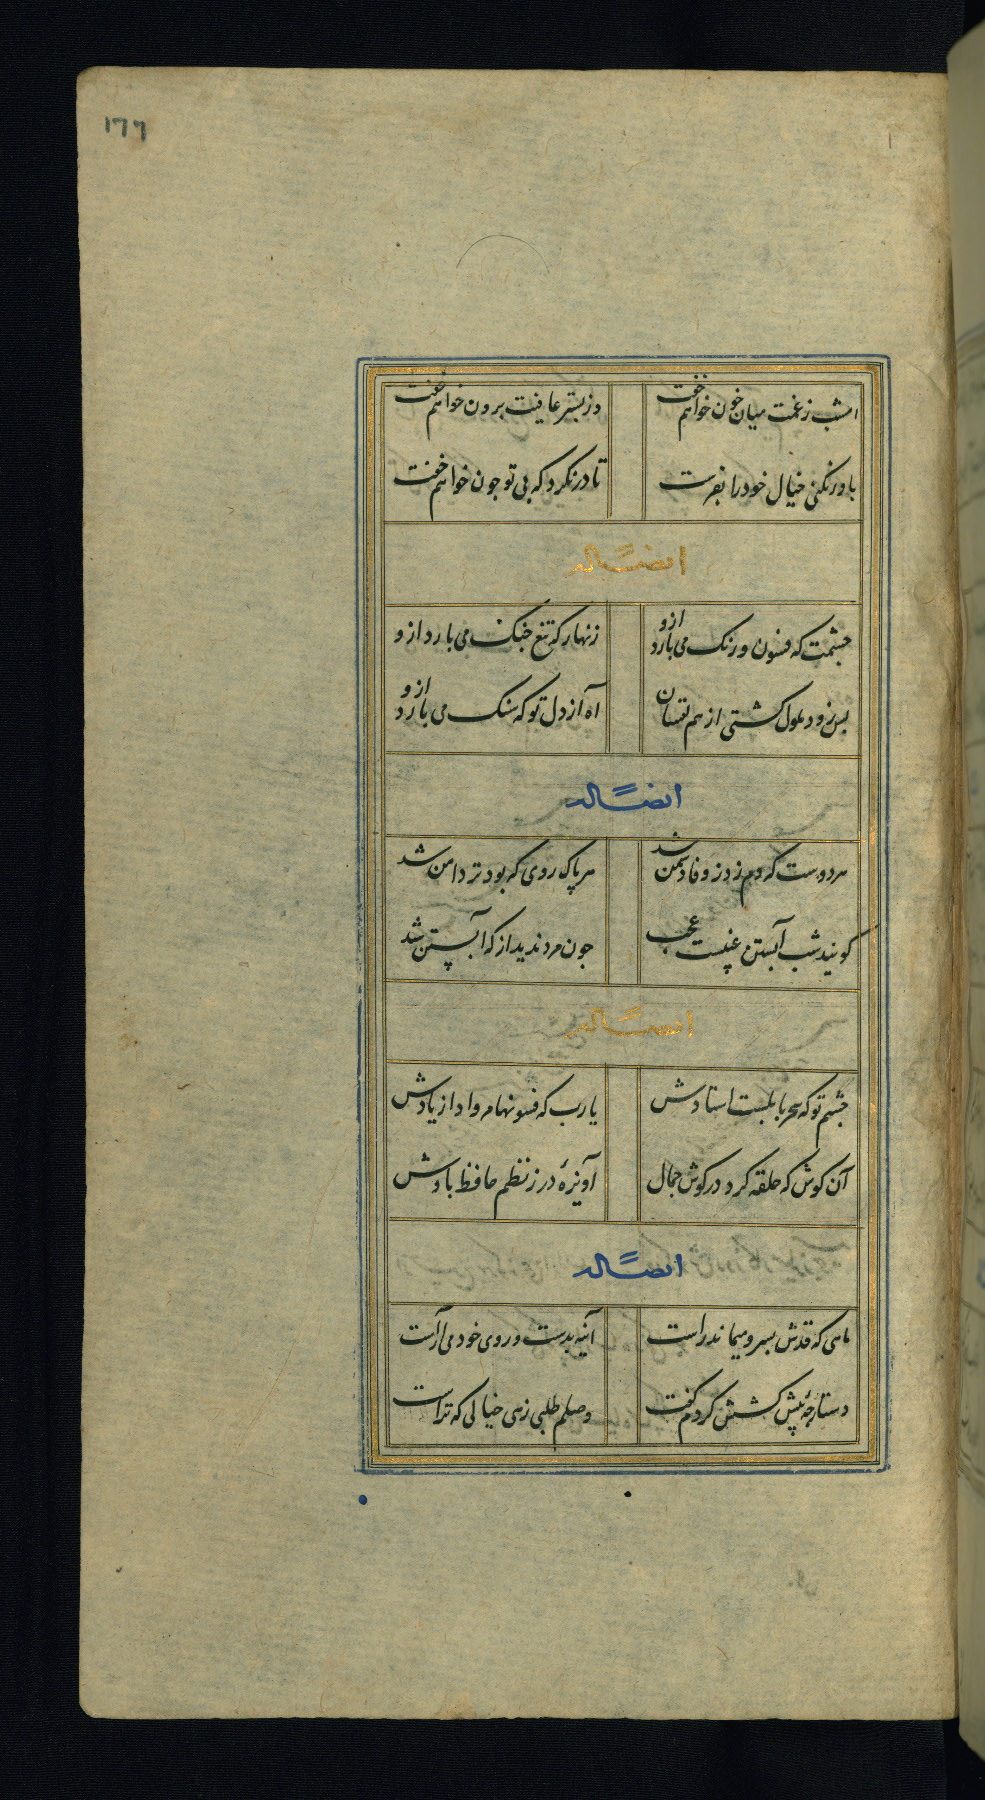 ۱۷۶
امشب ز غمت میان خون خواهم خفت
وز بستر عافیت برون خواهم خفت
باور نکنی خیال خود را بفرست
تا در نکرد که بی تو چون خواهم خفت
ایضاً له
چشمت که فسون و رنک می بارد ازو
زنهار که تیغ جنک می بارد ازو
بس زود ملول کشتی از هم نفسان
آه از دل تو که سنک می بارد ازو
ایضاً له
هر دوست که دم زد ز وفا دشمن شد
هر پاک روی که بود تر دامن شد
کویند شب آبستن غیبست عجب
چون مرد ندید از که آبستن شد
ایضاً له
چشم تو که سحر بابلست استادش
یا رب که فسونها مرواد از یادش
آن کوش که حلقه کرد در کوش جمال
آویزهٔ در ز نظم حافظ بادش
ایضاً له
ماهی که قدش بسرو میماند راست
آینه بدست و روی خود می آراست
دستارچهٔ پیش کشش کردم کفت
وصلم طلبی زهی خیالی که تراست